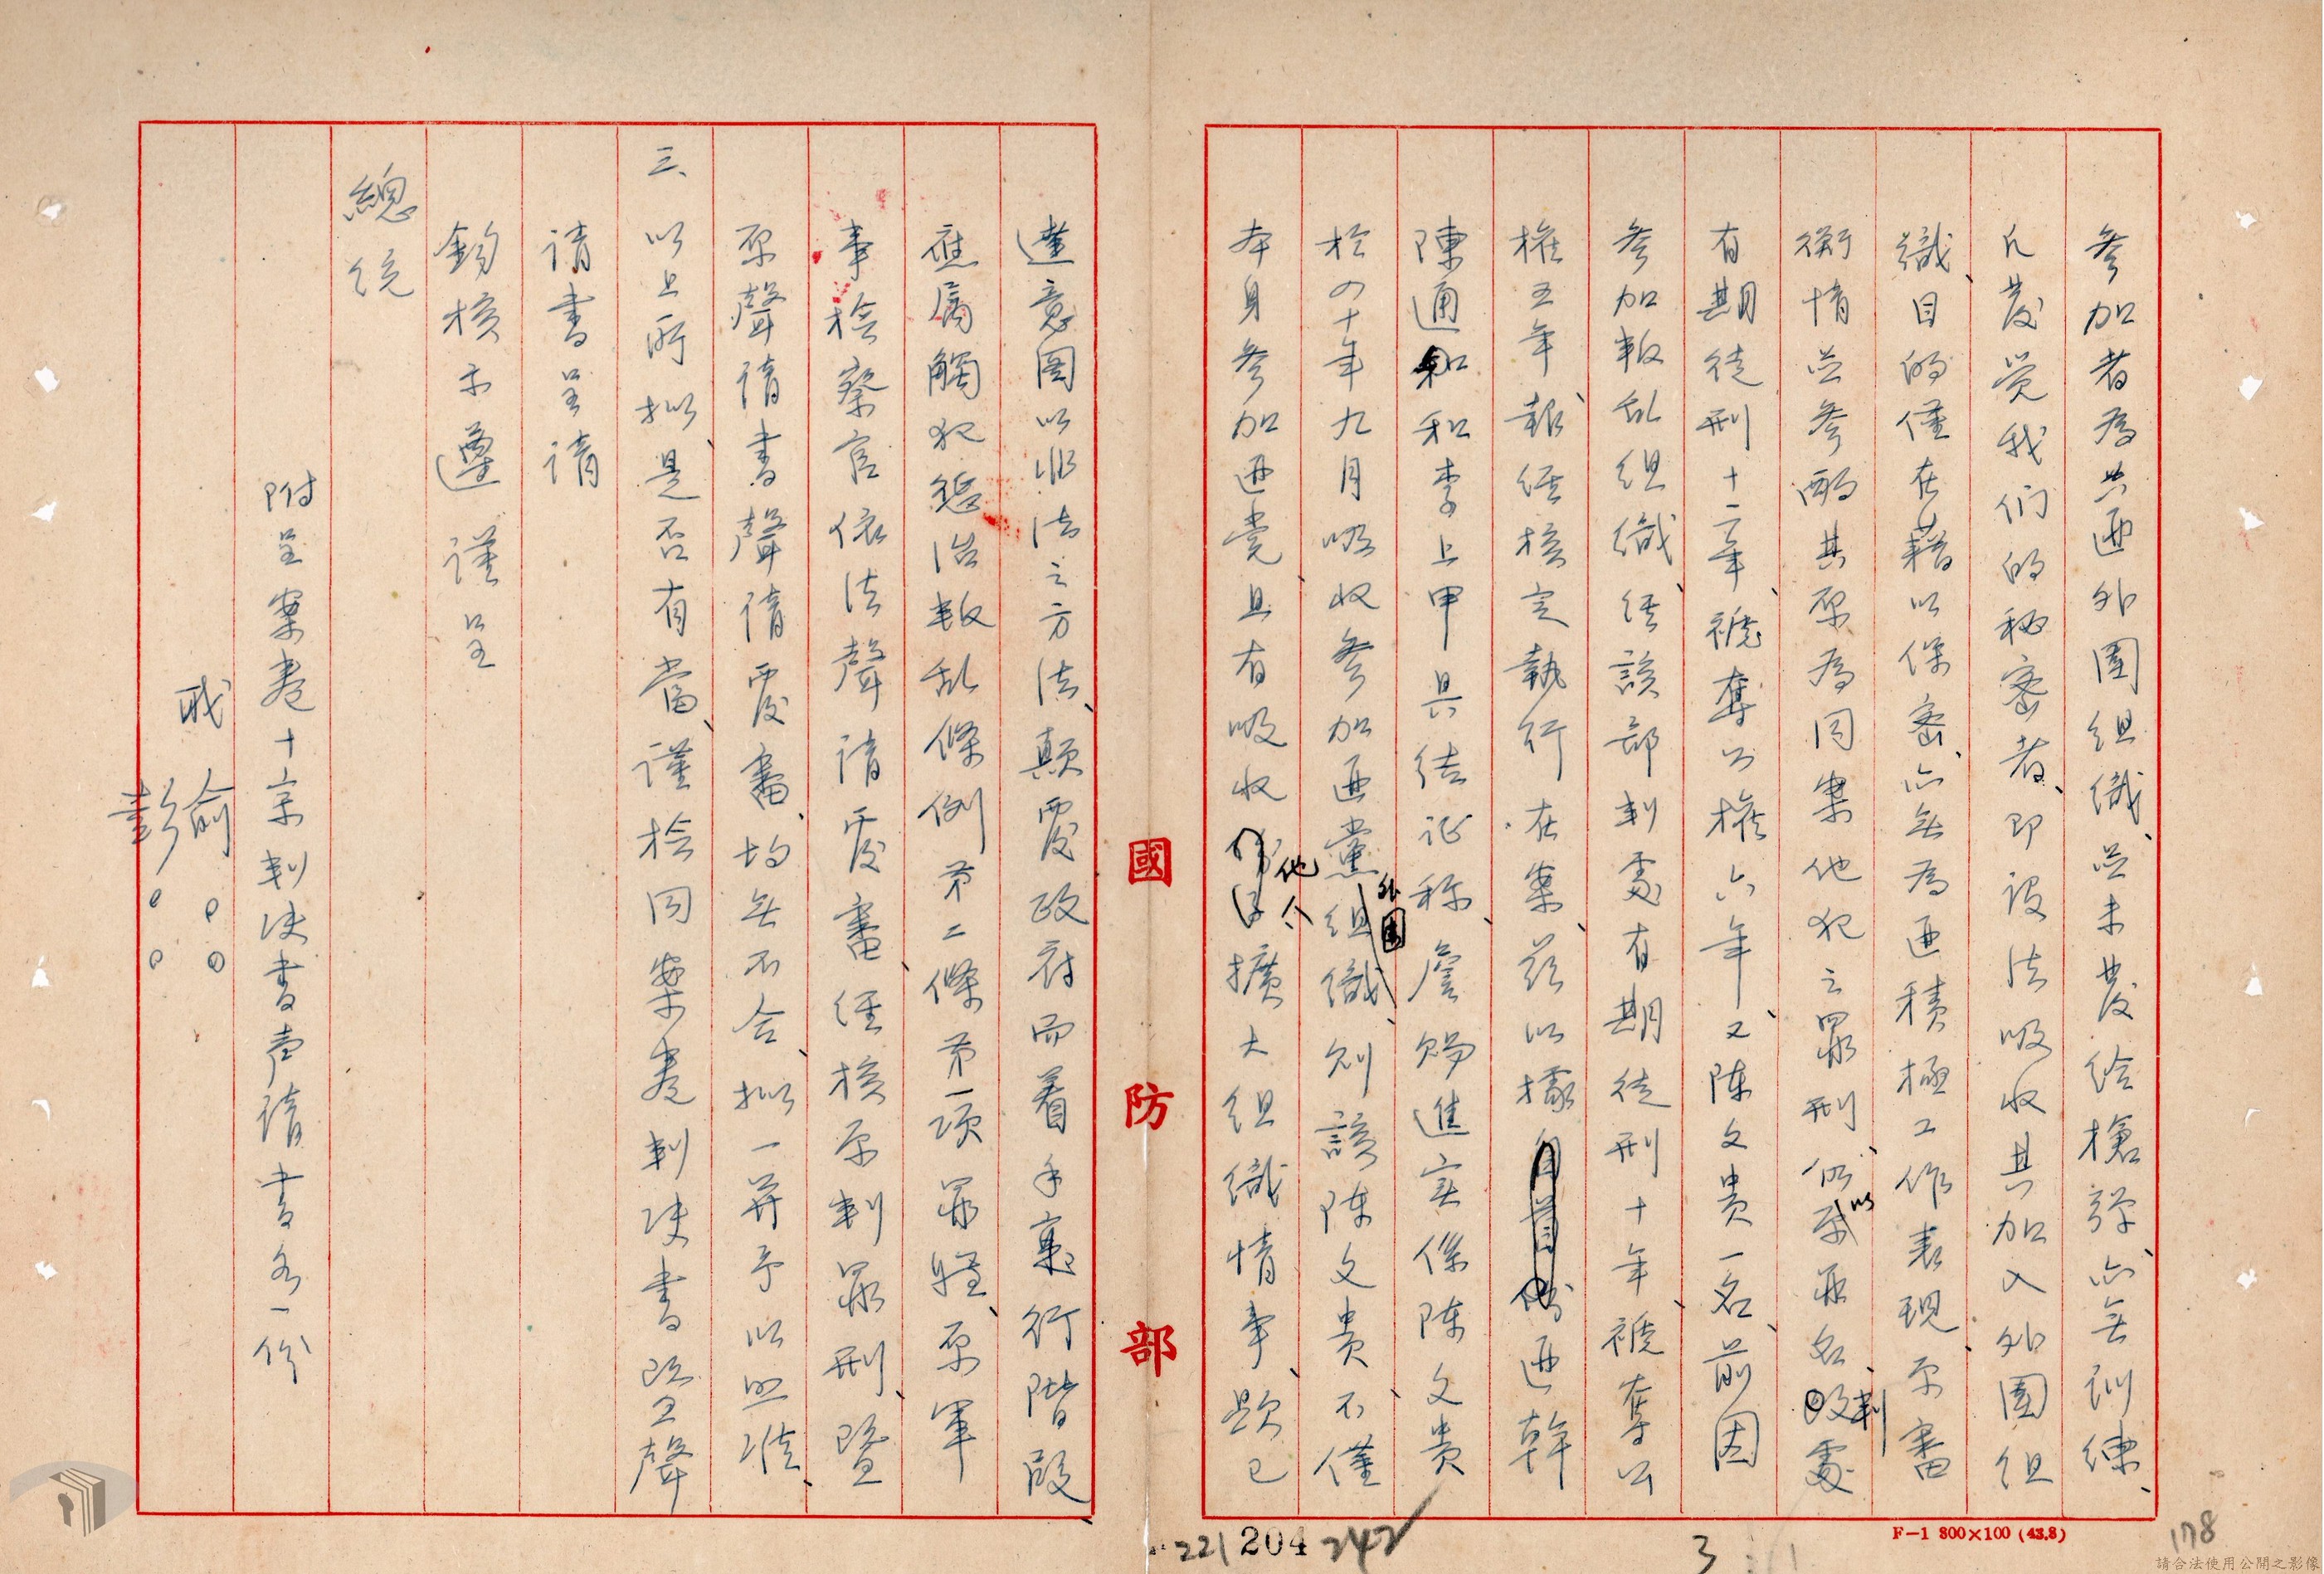 參加者為共匪外圍組織、並未發給槍彈、亦無訓練、
凡發覺我们的秘密者、即設法吸收其加入外圍組
織、目的僅在藉以保密、亦無為匪積極工作表現、原審
衡情並參酌其原為同案他犯之罪刑、仍以原匪名、改判處
有期徒刑十二年、褫奪公權六年、又陳文貴一名、前因
參加叛乱組織、經該部判處有期徒刑十年、褫奪公
權五年、報經核定執行在案、茲以據匪幹
陳通和和李上甲具結証称、詹賜進实係陈文貴
於四十年九月吸收參加匪黨外圍組織、則該陈文貴不僅
本身參加匪党、且有吸收他人擴大組織情事、顯已
達意圖以非法之方法、顛覆政府而着手實行階段
應屬觸犯懲治叛乱條例第二條第一項罪嫌、原軍
事检察官依法聲請覆審、經核原判罪刑、暨
原聲請書聲請覆審、均無不合、拟一并予以照准、
三、以上所拟、是否有當、謹检同案卷判决書暨聲
請書呈請
鈞核示遵 謹呈
總統
附呈案卷十宗判决書声請書各一份
職 俞○○
彭○○
國防部
F-1 800×100 (43.8)
178
3
242
204
221
請合法使用公開之影像